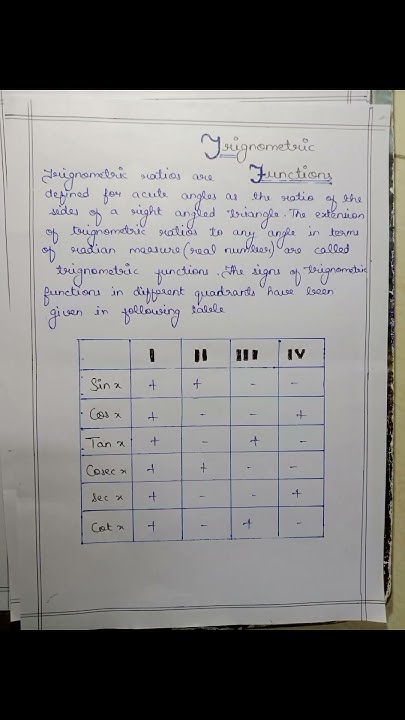 Trignometric
Functions
Trignometric ratios are
defined for acute angles as the ratio of the
sides of a right angled triangle. The extension
of trignometric ratios to any angle in terms
of radian measure (real number) are called
trignometric functions. The signs of trignometric
functions in different quadrants have been
given in following table
I II III IV
Sin x + + - -
Cos x + - - +
Tan x + - + -
Cosec x + + - -
Sec x + - - +
Cot x + - + -